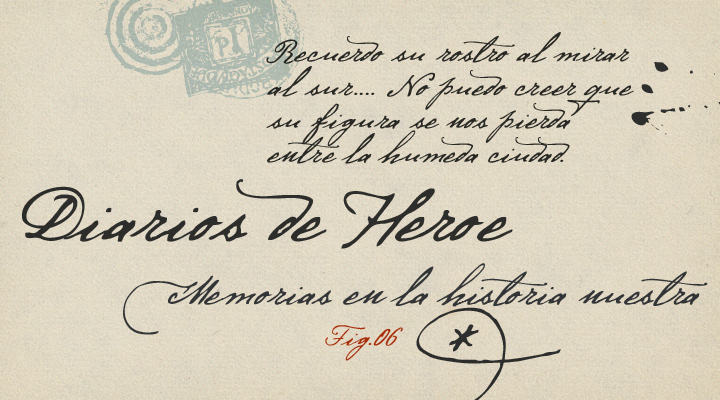 Recuerdo su rostro al mirar
al sur.... No puedo creer que
su figura se nos pierda
entre la humeda ciudad.
Diarios de Heroe
Memorias en la historia nuestra
Fig.06 *